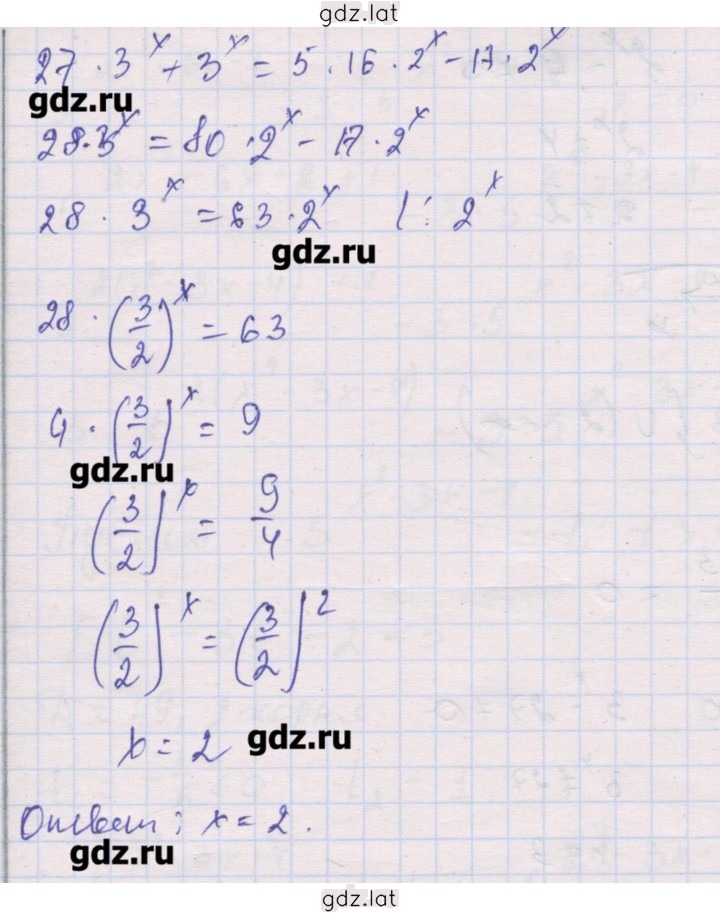 gdz.lat
27 · 3^x + 3^x = 5 · 16 · 2^x - 17 · 2^x
gdz.ru
28 · 3^x = 80 · 2^x - 17 · 2^x
28 · 3^x = 63 · 2^x | : 2^x
gdz.ru
28 · (3/2)^x = 63
4 · (3/2)^x = 9
gdz.ru
(3/2)^x = 9/4
(3/2)^x = (3/2)^2
x = 2 gdz.ru
Ответ: x = 2.
gdz.ru
gdz.lat